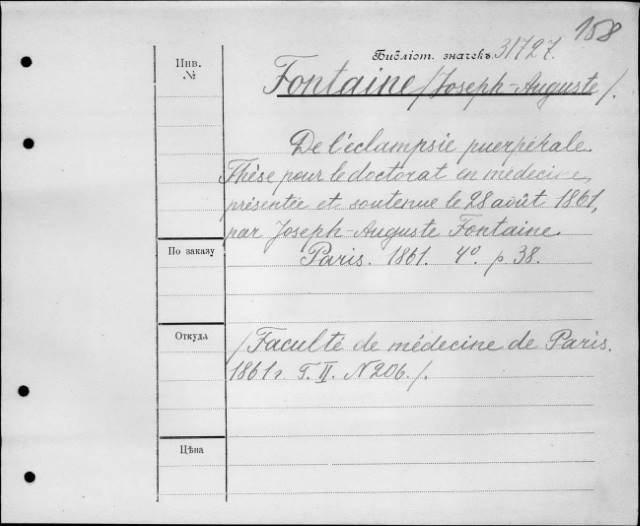 158
Инв.
№
Библіот. значекъ 31727.
Fontaine /Joseph-Auguste/.
De l'éclampsie puerpérale.
Thèse pour le doctorat en médecine,
présentée et soutenue le 28 août 1861,
par Joseph-Auguste Fontaine.
По заказу
Paris. 1861. 4º. p. 38.
Откуда
/Faculté de médecine de Paris.
1861 г. T. II. N 206./.
Цѣна